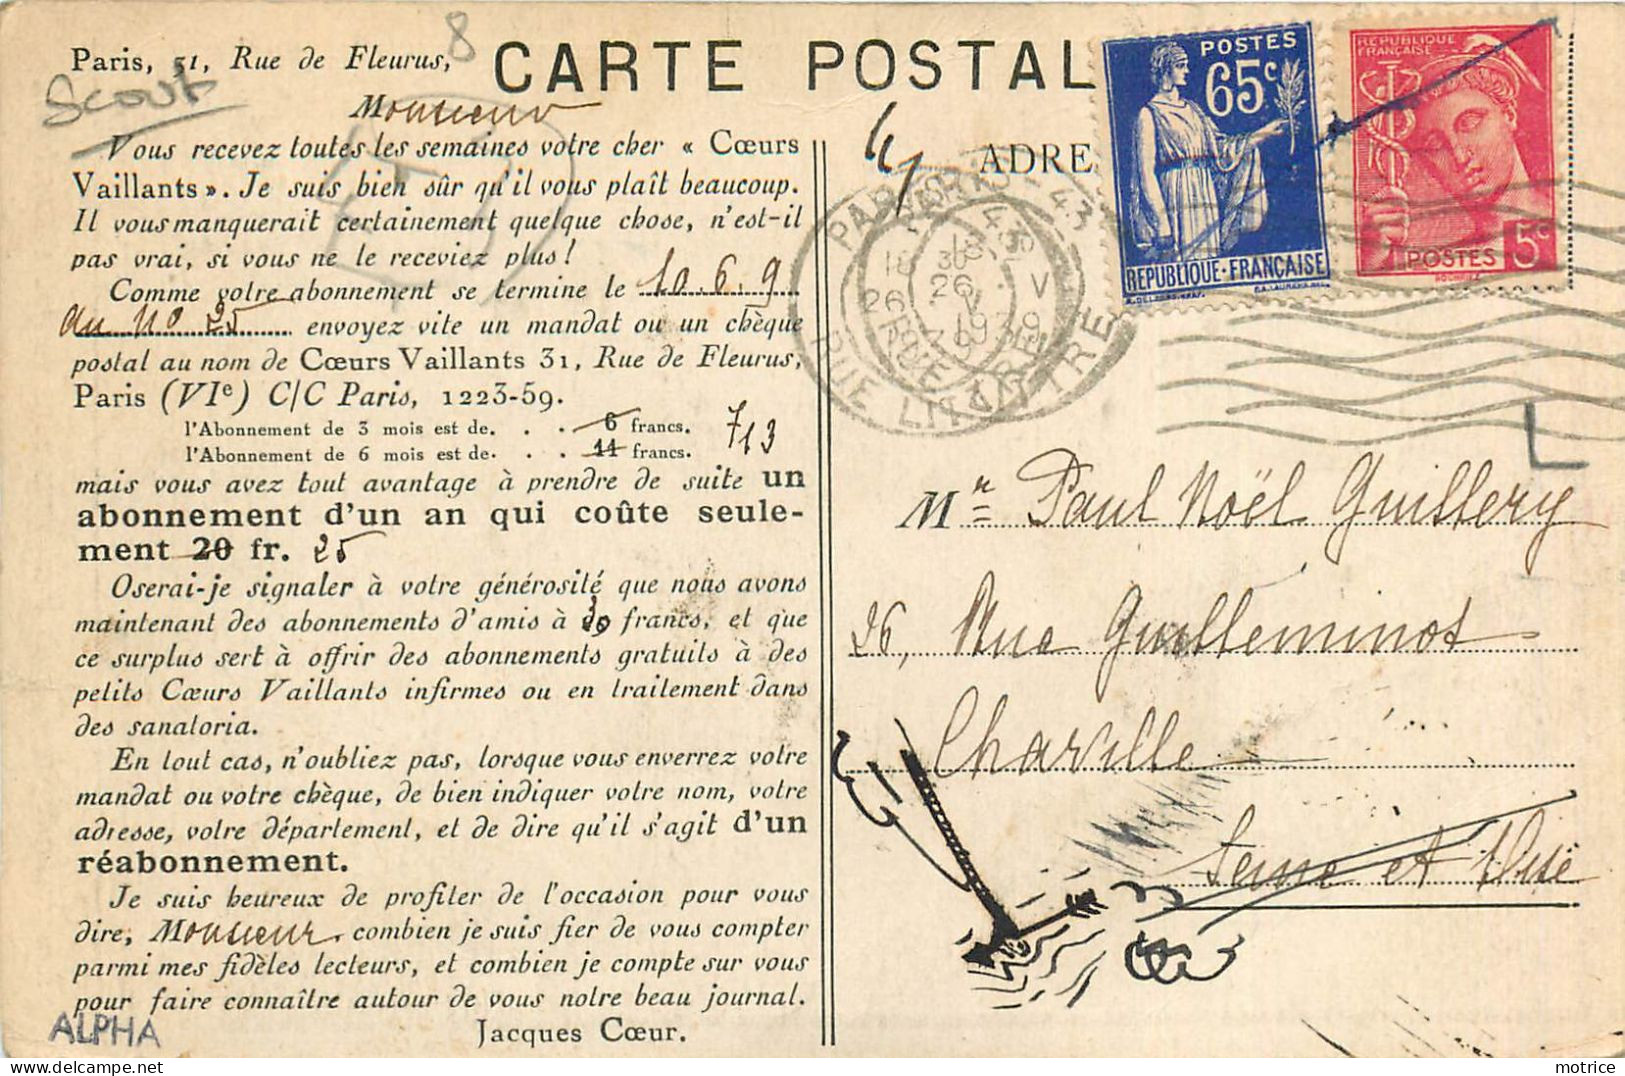 Paris, 31, Rue de Fleurus, 8
CARTE POSTAL
Scout
Monsieur
Vous recevez toutes les semaines votre cher « Cœurs
Vaillants ». Je suis bien sûr qu'il vous plaît beaucoup.
Il vous manquerait certainement quelque chose, n'est-il
pas vrai, si vous ne le receviez plus !
Comme votre abonnement se termine le 10.6.9
au No 25 envoyez vite un mandat ou un chèque
postal au nom de Cœurs Vaillants 31, Rue de Fleurus,
Paris (VIe) C/C Paris, 1223-59.
l'Abonnement de 3 mois est de. . . 6 francs. 7
l'Abonnement de 6 mois est de. . . 11 francs. 13
mais vous avez tout avantage à prendre de suite un
abonnement d'un an qui coûte seule-
ment 20 fr. 25
Oserai-je signaler à votre générosité que nous avons
maintenant des abonnements d'amis à 30 francs, et que
ce surplus sert à offrir des abonnements gratuits à des
petits Cœurs Vaillants infirmes ou en traitement dans
des sanatoria.
En tout cas, n'oubliez pas, lorsque vous enverrez votre
mandat ou votre chèque, de bien indiquer votre nom, votre
adresse, votre département, et de dire qu'il s'agit d'un
réabonnement.
Je suis heureux de profiter de l'occasion pour vous
dire, Monsieur, combien je suis fier de vous compter
parmi mes fidèles lecteurs, et combien je compte sur vous
pour faire connaître autour de vous notre beau journal.
Jacques Cœur.
ALPHA
ADRE
POSTES
65c
REPUBLIQUE·FRANÇAISE
REPUBLIQUE
FRANÇAISE
POSTES 5c
PARIS 43
RUE LITTRÉ
26 V
1939
Mr Paul Noël Guillery
26, Rue Guilleminot
Chaville
Seine et Oise
motrice